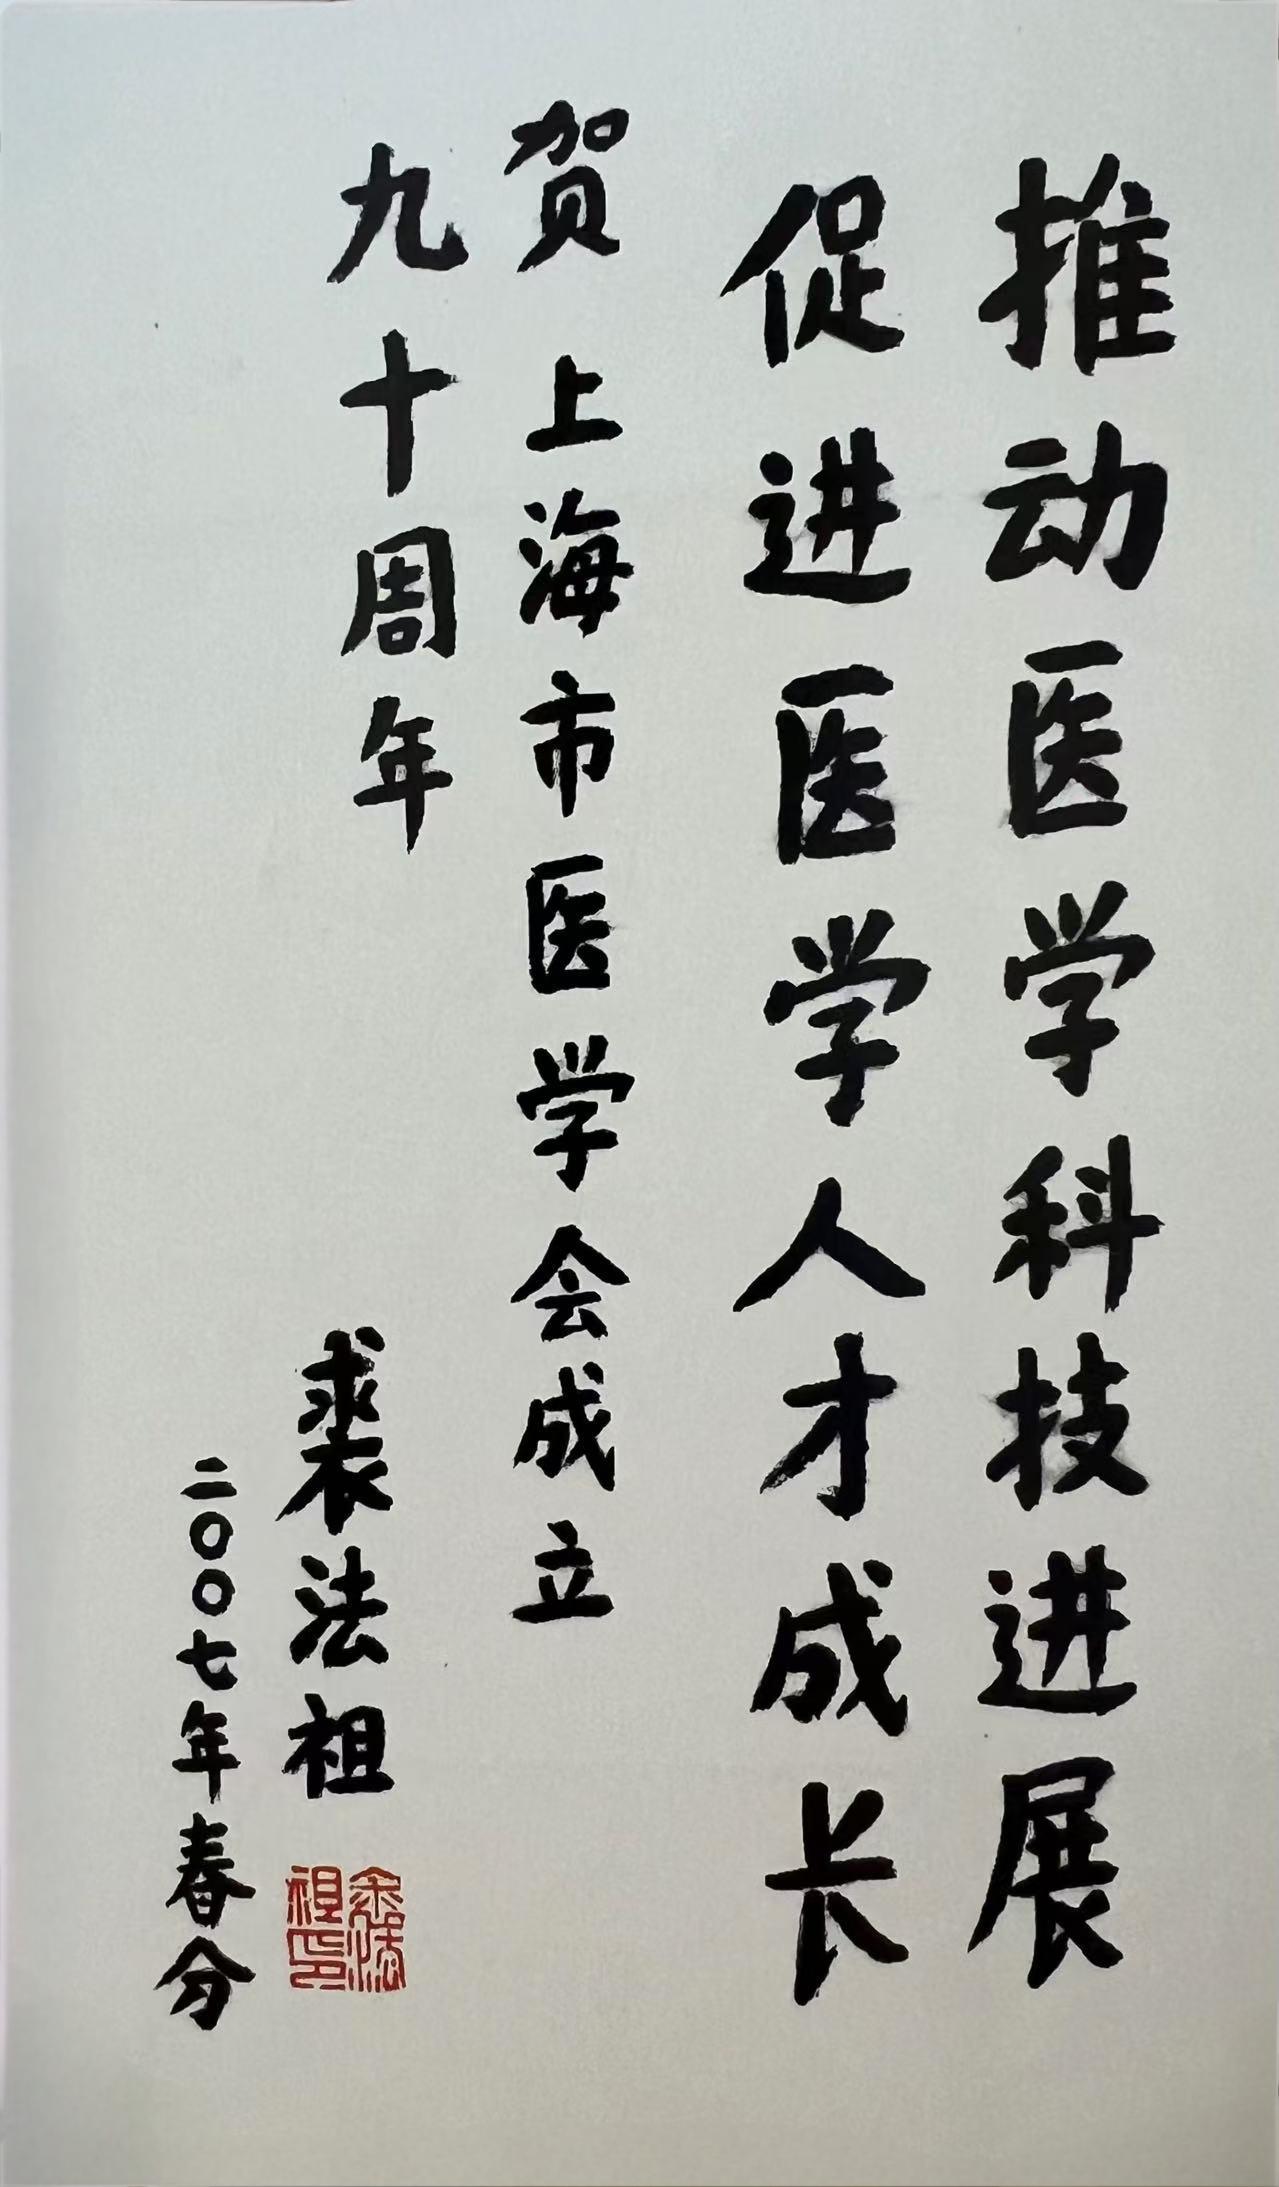 推动医学科技进展
促进医学人才成长
贺上海市医学会成立
九十周年
裘法祖
二〇〇七年春分
裘法祖印